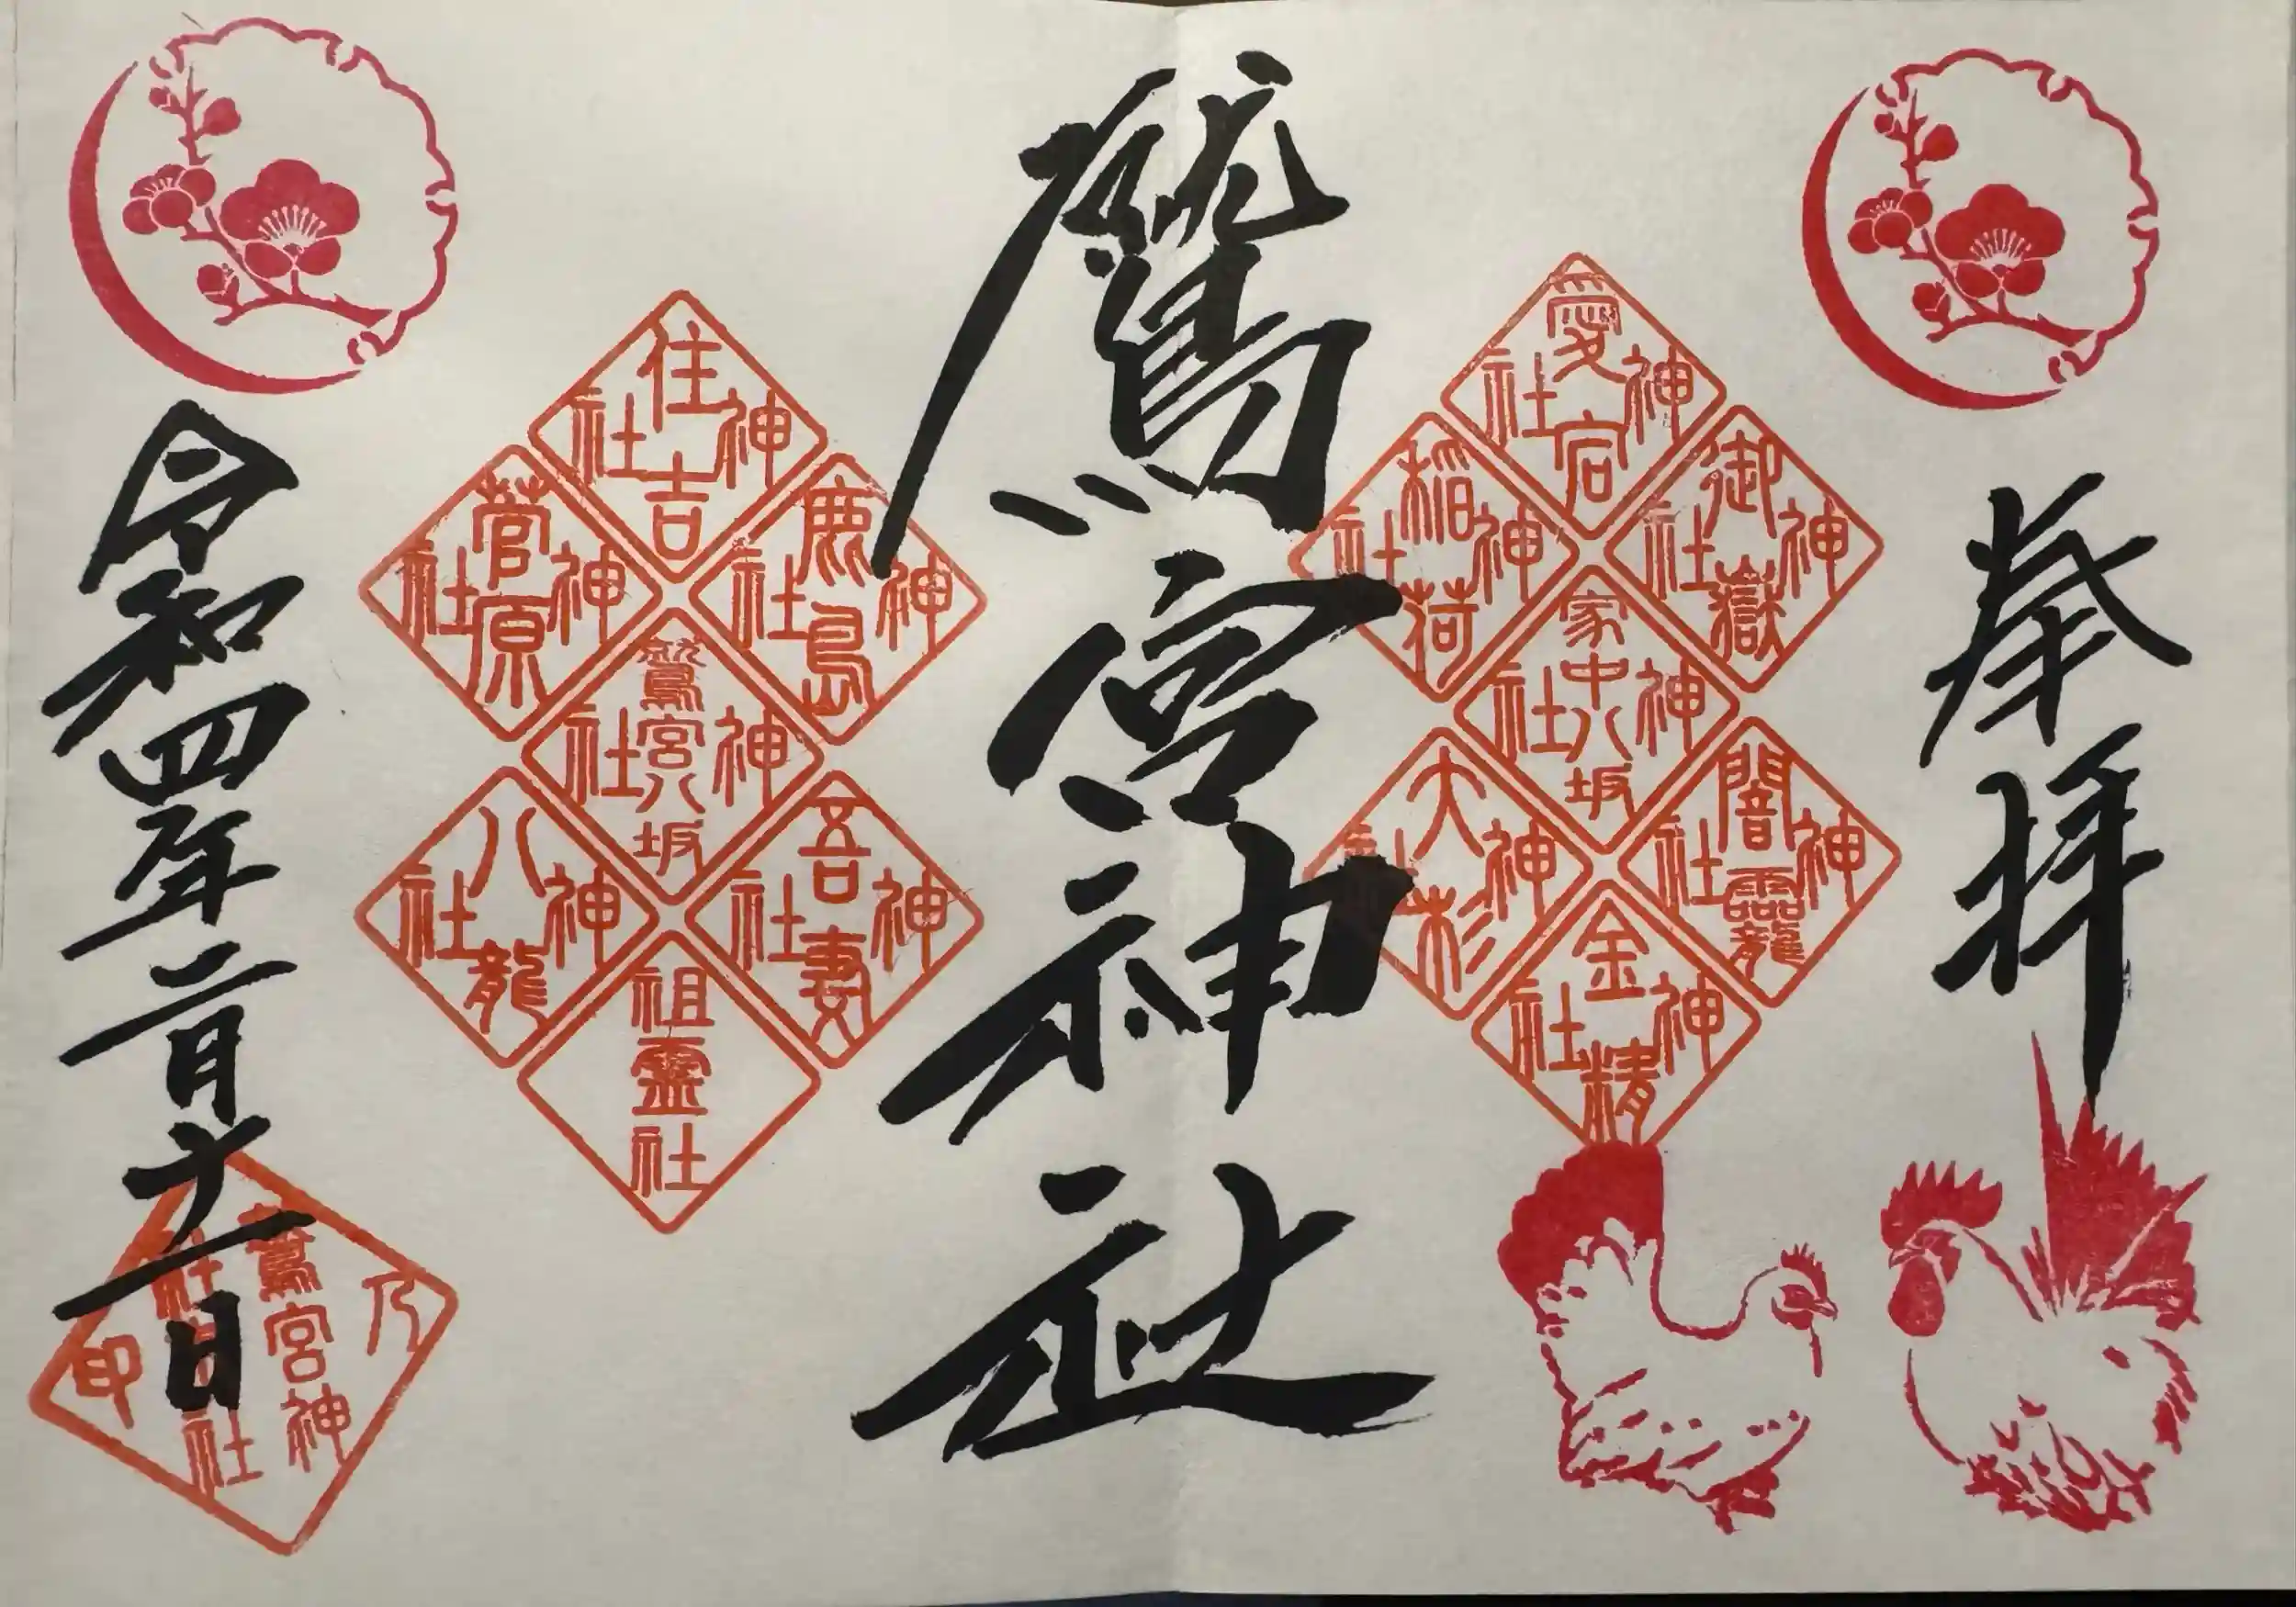 奉拝
愛宕神社
御嶽神社
稲荷神社
家中八坂神社
闇龗神社
大杉神社
金精神社
鷲宮神社
住吉神社
鹿島神社
菅原神社
鷲宮八坂神社
吾妻神社
八龍神社
祖霊社
令和四年二月十一日
乃
鷲宮神
社
印